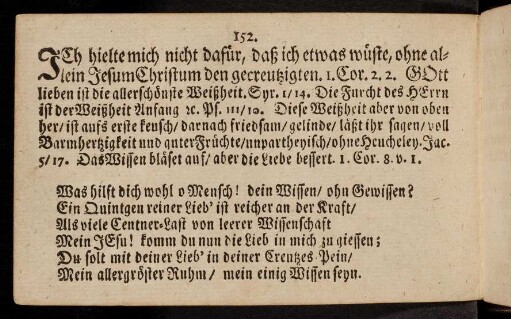 152.
ICh hielte mich nicht dafür, daß ich etwas wüste, ohne al-
lein JesumChristum den gecreutzigten. 1. Cor. 2. 2. GOtt
lieben ist die allerschönste Weißheit. Syr. 1/14. Die Furcht des HErrn
ist der Weißheit Anfang ꝛc. Ps. 111/10. Diese Weißheit aber von oben
her/ ist aufs erste keusch/ darnach friedsam/ gelinde/ läßt ihr sagen/ voll
Barmhertzigkeit und guter Früchte/ unpartheyisch/ ohne Heucheley. Jac.
5/17. Das Wissen bläset auf/ aber die Liebe bessert. 1. Cor. 8. v. 1.
Was hilft dich wohl o Mensch! dein Wissen/ ohn Gewissen?
Ein Quintgen reiner Lieb' ist reicher an der Kraft/
Als viele Centner-Last von leerer Wissenschaft
Mein JEsu! komm du nun die Lieb in mich zu giessen;
Du solt mit deiner Lieb' in deiner Creutzes-Pein/
Mein allergröster Ruhm/ mein einig Wissen seyn.